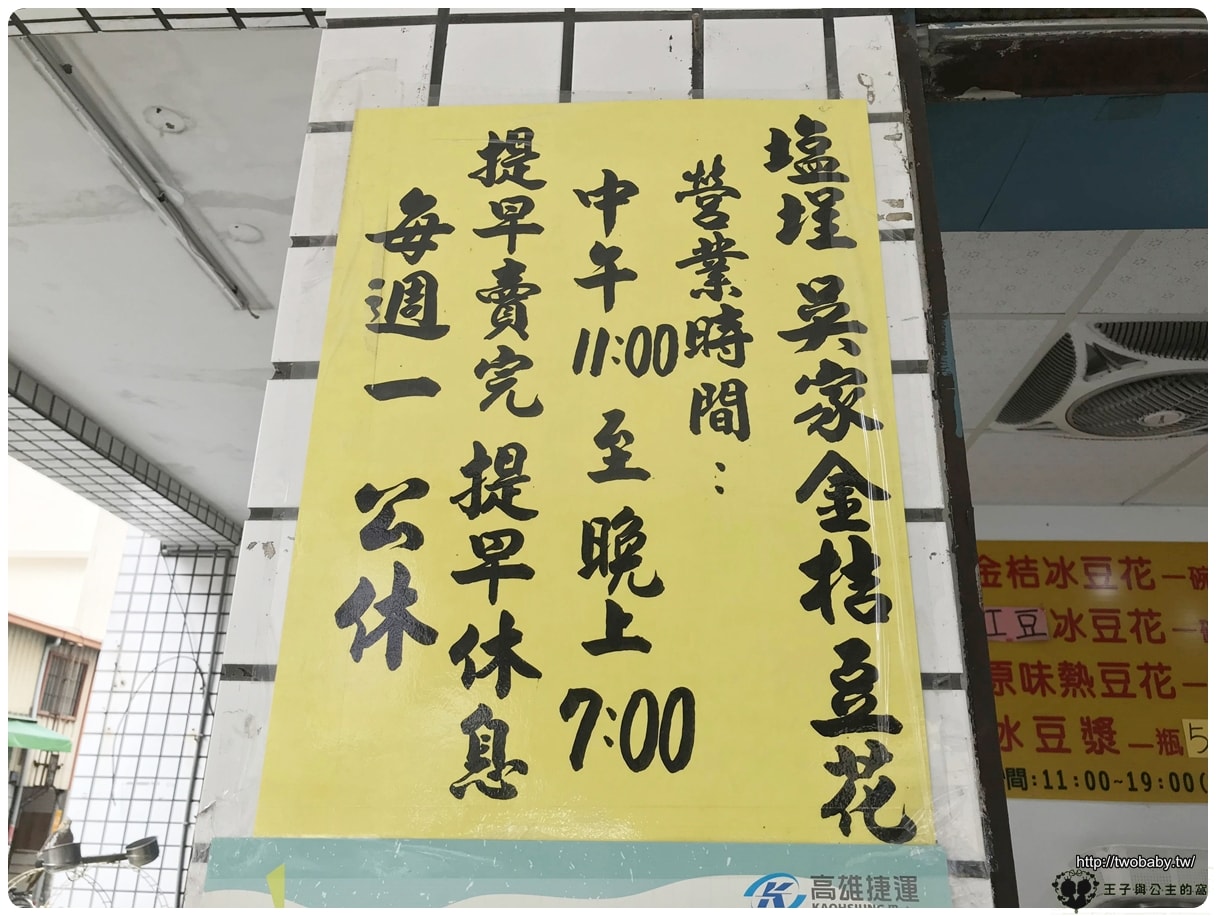 塩埕 吳家金桔豆花
營業時間：
中午11:00至晚上7:00
提早賣完 提早休息
每週一 公休
金桔冰豆花一碗
紅豆冰豆花一
原味熱豆花一
冰豆漿一瓶5
間:11:00~19:00(
高雄捷運
http://twobaby.tw/
王子與公主的窩